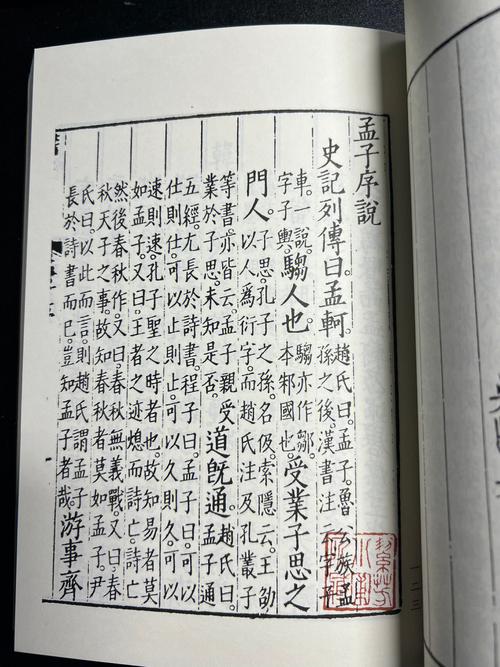 孟子序說
史記列傳曰。孟軻。趙氏曰。孟子。魯公族孟
孫之後。漢書注云。字子
車。一說。
字子輿。騶人也。騶亦作鄒。
本邾國也。受業子思之
門人。子思。孔子之孫。名伋。索隱云。王劭
以人爲衍字。而趙氏注及孔叢子
等書。亦皆云。孟子親受
業於子思。未知是否。道旣通。趙氏曰。
孟子通
五經。尤長於詩書。程子曰。孟子曰。可以
仕則仕。可以止則止。可以久則久。可以
速則速。孔子聖之時者也。故知易者莫
如孟子。又曰。王者之迹熄而詩亡。詩亡
然後春秋作。又曰。春秋無義戰。又曰。春
秋天子之事。故知春秋者莫如孟子。尹
氏曰。以此而言。則趙氏謂孟子
長於詩書而已。豈知孟子者哉。游事齊
一二三